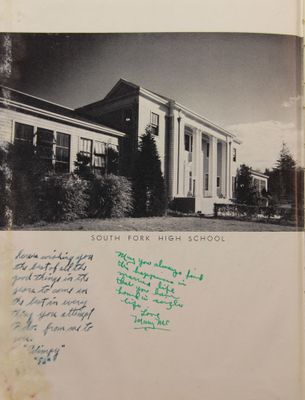 SOUTH FORK HIGH SCHOOL
here's wishing you
the best of all the
good things in the
years to come and
the best in every
thing you attempt
to do. from me to
you.
"Blimpy"
May you always find
the happiness in
married life
that you have
had in single
life
Love
Mary Mc